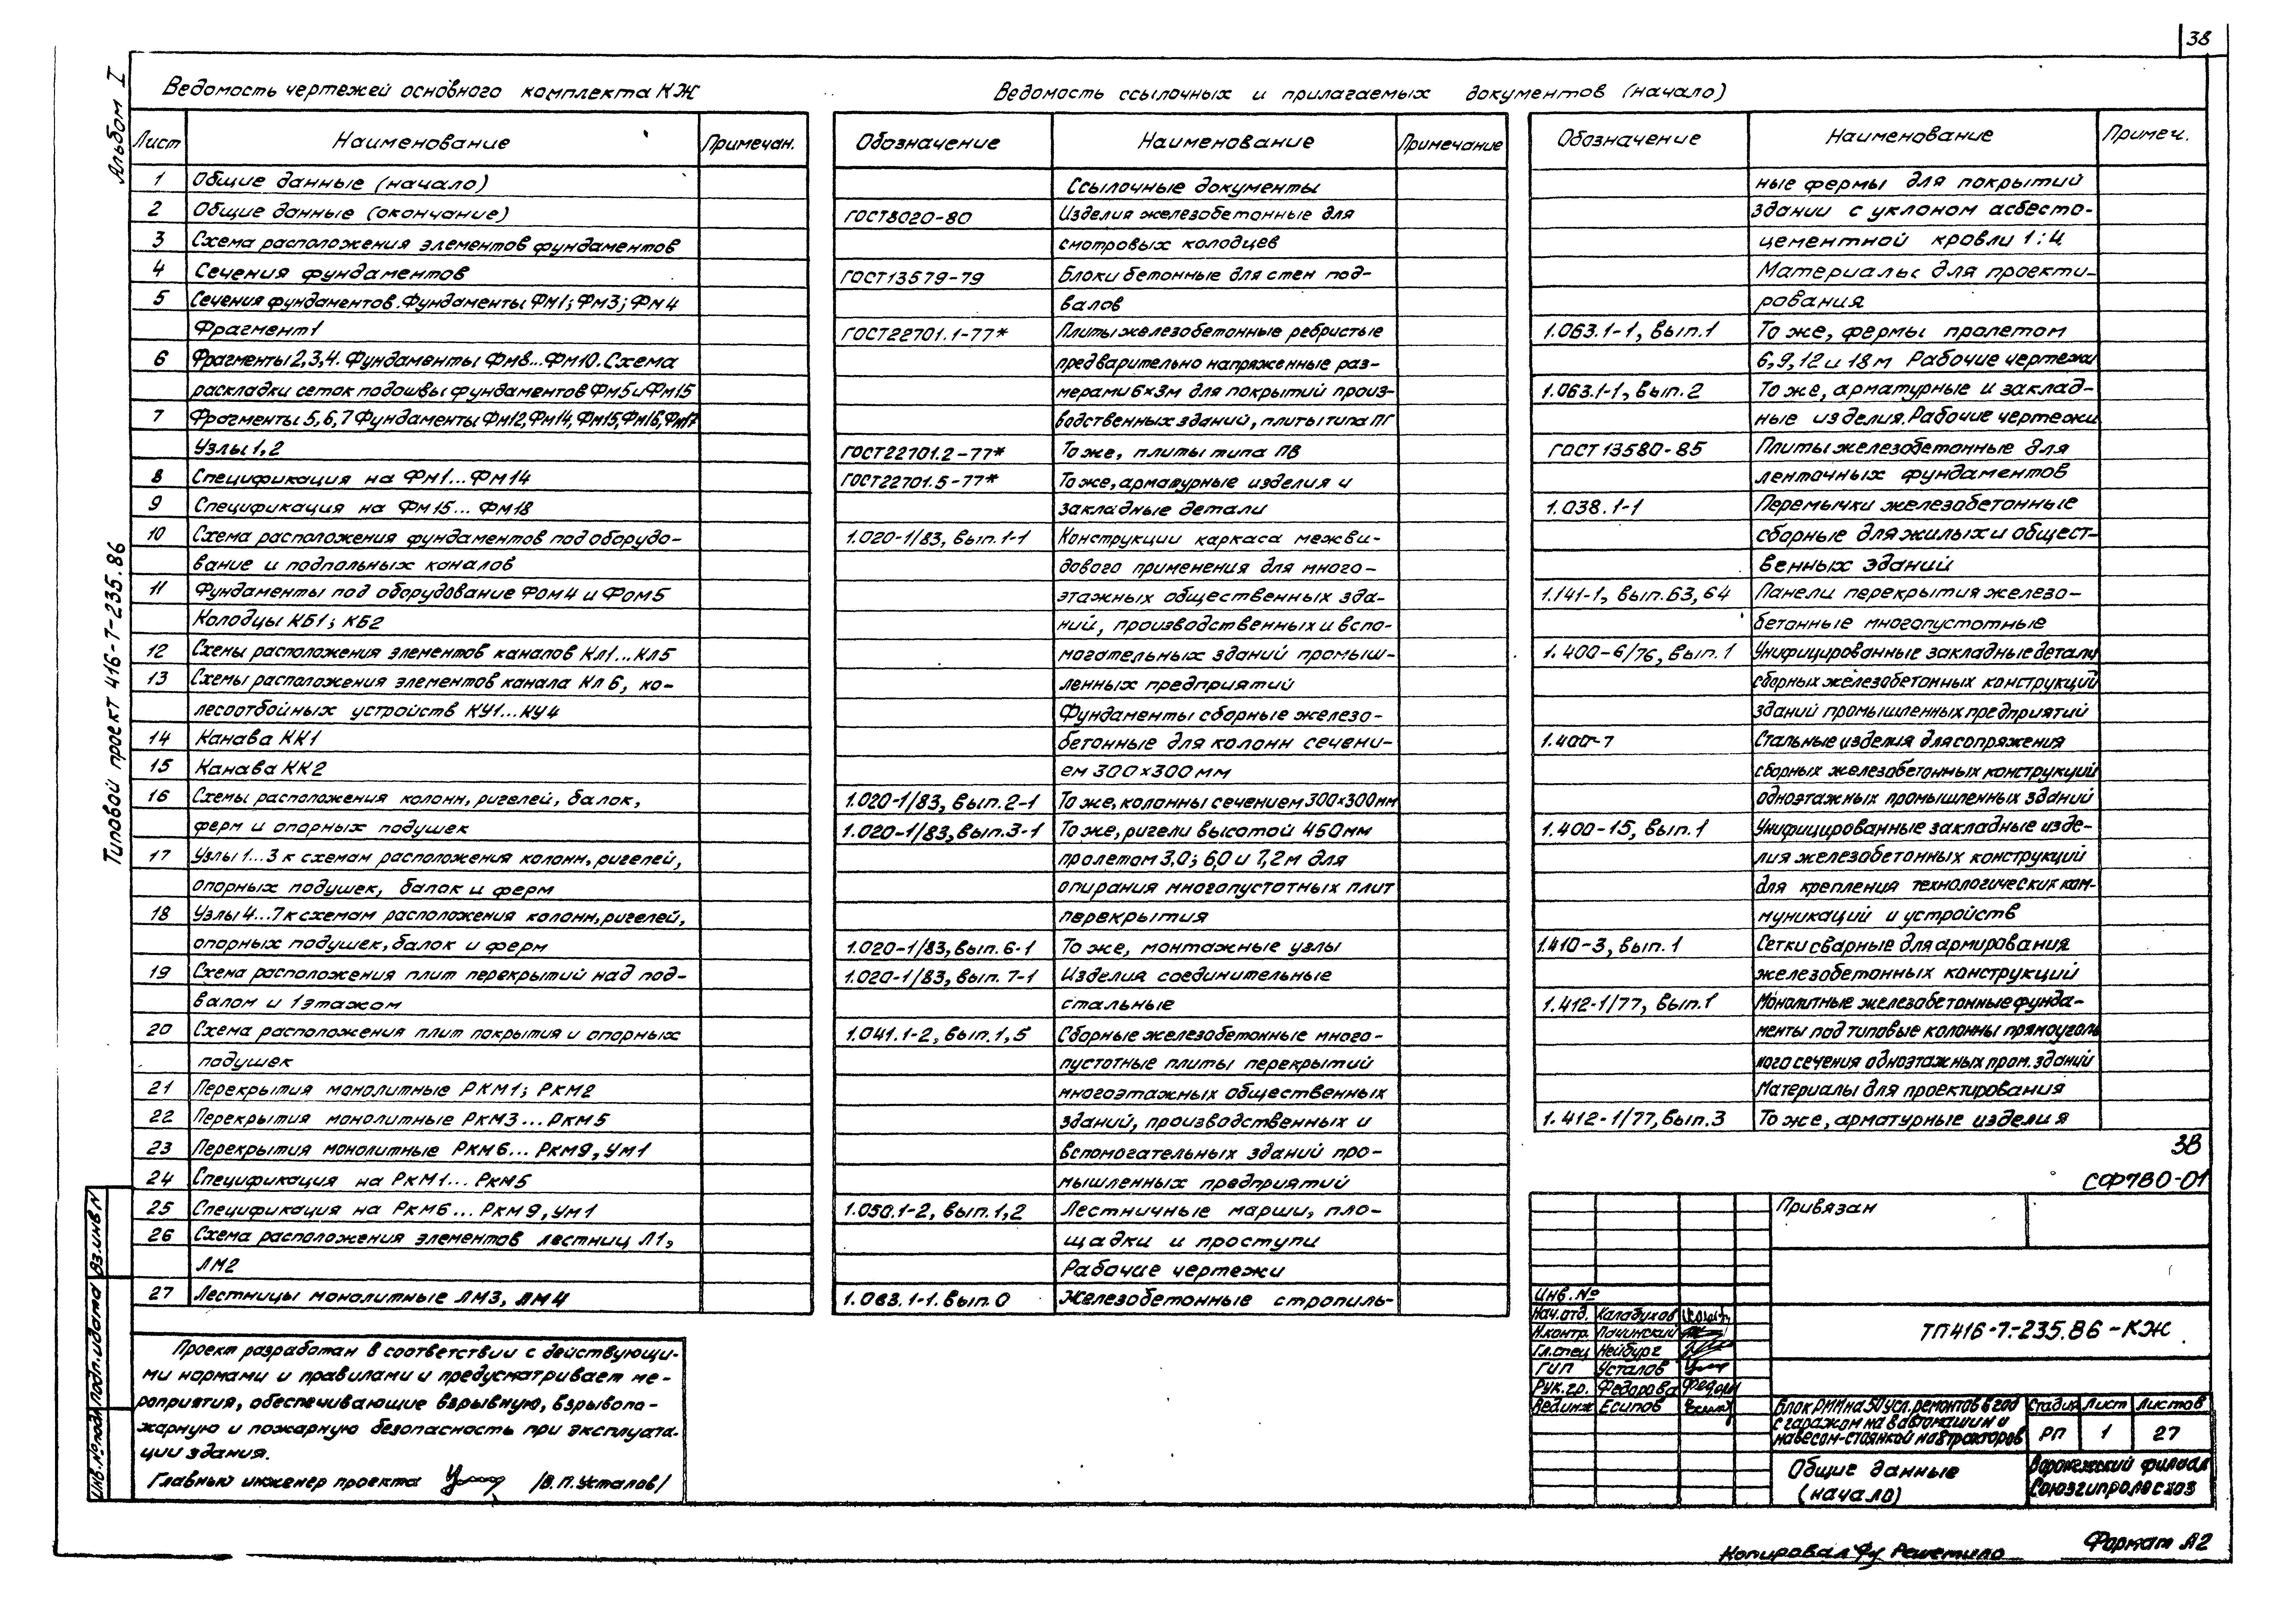 38
Альбом I
Типовой проект 416-7-235.86
Ведомость чертежей основного комплекта КЖ
Лист Наименование Примечан.
1 Общие данные (начало)
2 Общие данные (окончание)
3 Схема расположения элементов фундаментов
4 Сечения фундаментов
5 Сечения фундаментов. Фундаменты Фм1; Фм3; Фм4
Фрагмент 1
6 Фрагменты 2,3,4. Фундаменты Фм8...Фм10. Схема
раскладки сеток подошвы фундаментов Фм5 и Фм15
7 Фрагменты 5,6,7 Фундаменты Фм12, Фм14, Фм15, Фм16, Фм17
Узлы 1,2
8 Спецификация на Фм1...Фм14
9 Спецификация на Фм15...Фм18
10 Схема расположения фундаментов под оборудо-
вание и подпольных каналов
11 Фундаменты под оборудование Фом4 и Фом5
Колодцы КБ1; КБ2
12 Схемы расположения элементов каналов Кл1...Кл5
13 Схемы расположения элементов канала Кл6, ко-
лесоотбойных устройств КУ1...КУ4
14 Канава КК1
15 Канава КК2
16 Схемы расположения колонн, ригелей, балок,
ферм и опорных подушек
17 Узлы 1...3 к схемам расположения колонн, ригелей,
опорных подушек, балок и ферм
18 Узлы 4...7 к схемам расположения колонн, ригелей,
опорных подушек, балок и ферм
19 Схема расположения плит перекрытий над под-
валом и 1 этажом
20 Схема расположения плит покрытия и опорных
подушек
21 Перекрытия монолитные РКМ1; РКМ2
22 Перекрытия монолитные РКМ3...РКМ5
23 Перекрытия монолитные РКМ6...РКМ9, УМ1
24 Спецификация на РКМ1...РКМ5
25 Спецификация на РКМ6...РКМ9, УМ1
26 Схема расположения элементов лестниц Л1,
ЛМ2
27 Лестницы монолитные ЛМ3, ЛМ4
Ведомость ссылочных и прилагаемых документов (начало)
Обозначение Наименование Примечание
Ссылочные документы
ГОСТ 8020-80 Изделия железобетонные для
смотровых колодцев
ГОСТ 13579-79 Блоки бетонные для стен под-
валов
ГОСТ 22701.1-77* Плиты железобетонные ребристые
предварительно напряженные раз-
мерами 6×3м для покрытий произ-
водственных зданий, плиты типа ПГ
ГОСТ 22701.2-77* То же, плиты типа ПВ
ГОСТ 22701.5-77* То же, арматурные изделия и
закладные детали
1.020-1/83, вып. 1-1 Конструкции каркаса межви-
дового применения для много-
этажных общественных зда-
ний, производственных и вспо-
могательных зданий промыш-
ленных предприятий
Фундаменты сборные железо-
бетонные для колонн сечени-
ем 300×300 мм
1.020-1/83, вып. 2-1 То же, колонны сечением 300×300мм
1.020-1/83, вып. 3-1 То же, ригели высотой 450мм
пролетом 3,0; 6,0 и 7,2м для
опирания многопустотных плит
перекрытия
1.020-1/83, вып. 6-1 То же, монтажные узлы
1.020-1/83, вып. 7-1 Изделия соединительные
стальные
1.041.1-2, вып. 1,5 Сборные железобетонные много-
пустотные плиты перекрытий
многоэтажных общественных
зданий, производственных и
вспомогательных зданий про-
мышленных предприятий
1.050.1-2, вып. 1,2 Лестничные марши, пло-
щадки и проступи
Рабочие чертежи
1.063.1-1. вып. 0 Железобетонные стропиль-
Обозначение Наименование Примеч.
ные фермы для покрытий
зданий с уклоном асбесто-
цементной кровли 1:4
Материалы для проекти-
рования
1.063.1-1, вып. 1 То же, фермы пролетом
6, 9, 12 и 18м Рабочие чертежи
1.063.1-1, вып. 2 То же, арматурные и заклад-
ные изделия. Рабочие чертежи
ГОСТ 13580-85 Плиты железобетонные для
ленточных фундаментов
1.038.1-1 Перемычки железобетонные
сборные для жилых и общест-
венных зданий
1.141-1, вып. 63, 64 Панели перекрытия железо-
бетонные многопустотные
1.400-6/76, вып. 1 Унифицированные закладные детали
сборных железобетонных конструкций
зданий промышленных предприятий
1.400-7 Стальные изделия для сопряжения
сборных железобетонных конструкций
одноэтажных промышленных зданий
1.400-15, вып. 1 Унифицированные закладные изде-
лия железобетонных конструкций
для крепления технологических ком-
муникаций и устройств
1.410-3, вып. 1 Сетки сварные для армирования
железобетонных конструкций
1.412-1/77, вып. 1 Монолитные железобетонные фунда-
менты под типовые колонны прямоуголь
ного сечения одноэтажных пром. зданий
Материалы для проектирования
1.412-1/77, вып. 3 То же, арматурные изделия
38
СФ780-01
Проект разработан в соответствии с действующи-
ми нормами и правилами и предусматривает ме-
роприятия, обеспечивающие взрывную, взрывопо-
жарную и пожарную безопасность при эксплуата-
ции здания.
Главный инженер проекта /В.П. Усталов/
Инв.№подл Подп. и дата Вз.инв N
Привязан
Инв. №
Нач.отд. Калабухов
Н.контр. Пачинский
Гл.спец Нейбург
ГИП Усталов
Рук.гр. Федорова
Вед.инж Есипов
ТП 416-7-235.86-КЖ
Блок РММ на 50 усл. ремонтов в год
с гаражом на 8 автомашин и
навесом-стоянкой на 8 тракторов
Стадия Лист Листов
РП 1 27
Общие данные
(начало)
Воронежский филиал
Союзгипролесхоз
Копировал Решетило
Формат А2